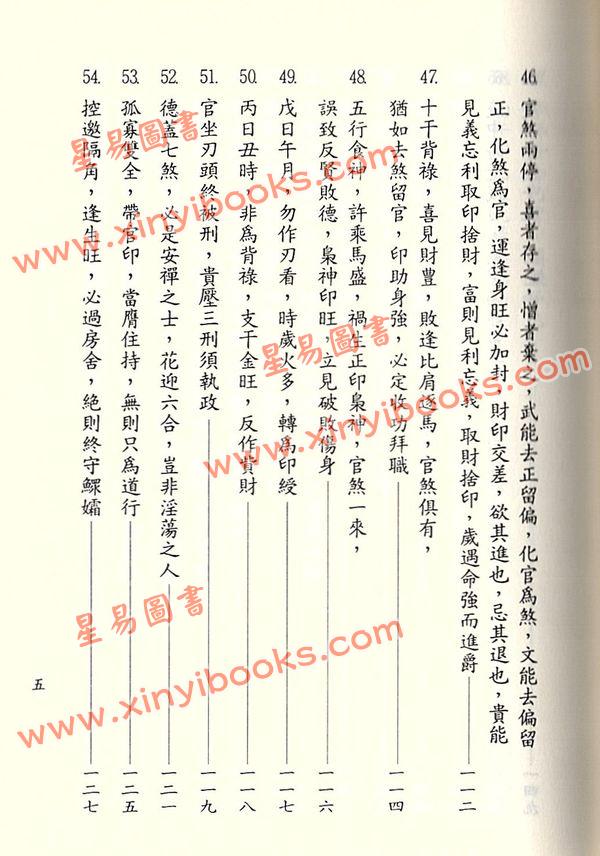 46. 官煞兩停，喜者存之，憎者棄之，武能去正留偏，化官為煞，文能去偏留
正，化煞為官，運逢身旺必加封，財印交差，欲其進也，忌其退也，貴能
見義忘利取印捨財，富則見利忘義，取財捨印，歲遇命強而進爵——一一二
47. 十干背祿，喜見財豐，敗逢比肩逐馬，官煞俱有，
猶如去煞留官，印助身強，必定收功拜職——一一四
48. 五行食神，許乘馬盛，禍生正印梟神，官煞一來，
誤致反賢敗德，梟神印旺，立見破敗傷身——一一六
49. 戊日午月，勿作刃看，時歲火多，轉為印綬——一一七
50. 丙日丑時，非為背祿，支干金旺，反作貴財——一一八
51. 官坐刃頭終被刑，貴壓三刑須執政——一一九
52. 德蓋七煞，必是安禪之士，花迎六合，豈非淫蕩之人——一二一
53. 孤寡雙全，帶官印，當膺住持，無則只為道行——一二五
54. 控邀隔角，逢生旺，必過房舍，絕則終守鰥孀——一二七
五
星易圖書
www.xinyibooks.com
星易圖書
www.xinyibooks.com
星易圖書
www.xinyibooks.com